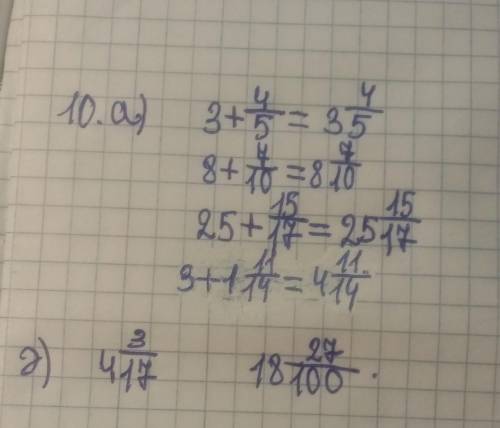 10. а) 3 + 4/5 = 3 4/5
8 + 7/10 = 8 7/10
25 + 15/17 = 25 15/17
3 + 1 11/14 = 4 11/14
д) 4 3/17 18 27/100.